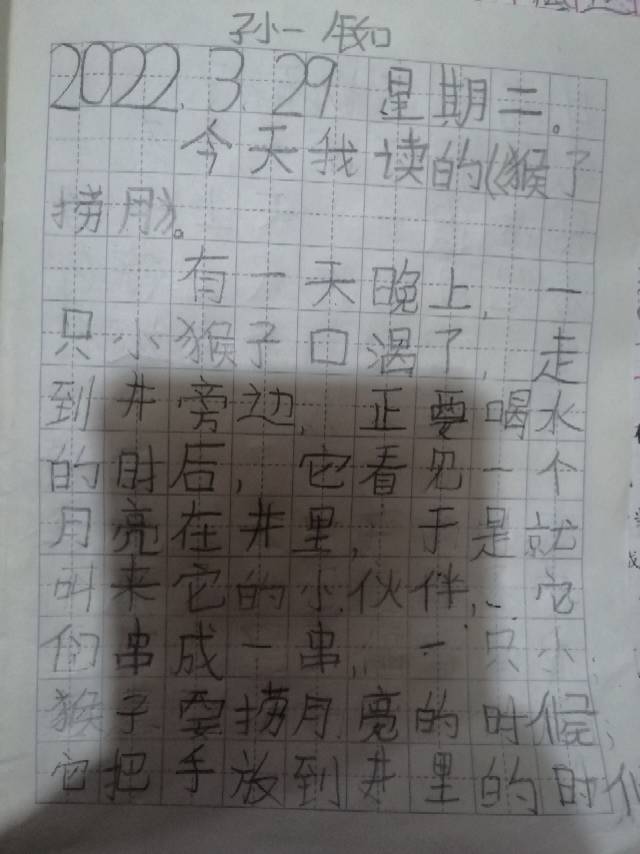 孙一
2022.3.29 星期二。
今天我读的《猴了
捞月》。
有一天晚上，一
只小猴子口渴了，走
到井旁边，正要喝水
的时后，它看见一个
月亮在井里，于是就
叫来它的小伙伴，它
们串成一串，一只小
猴子要捞月亮的时候，
它把手放到井里的时